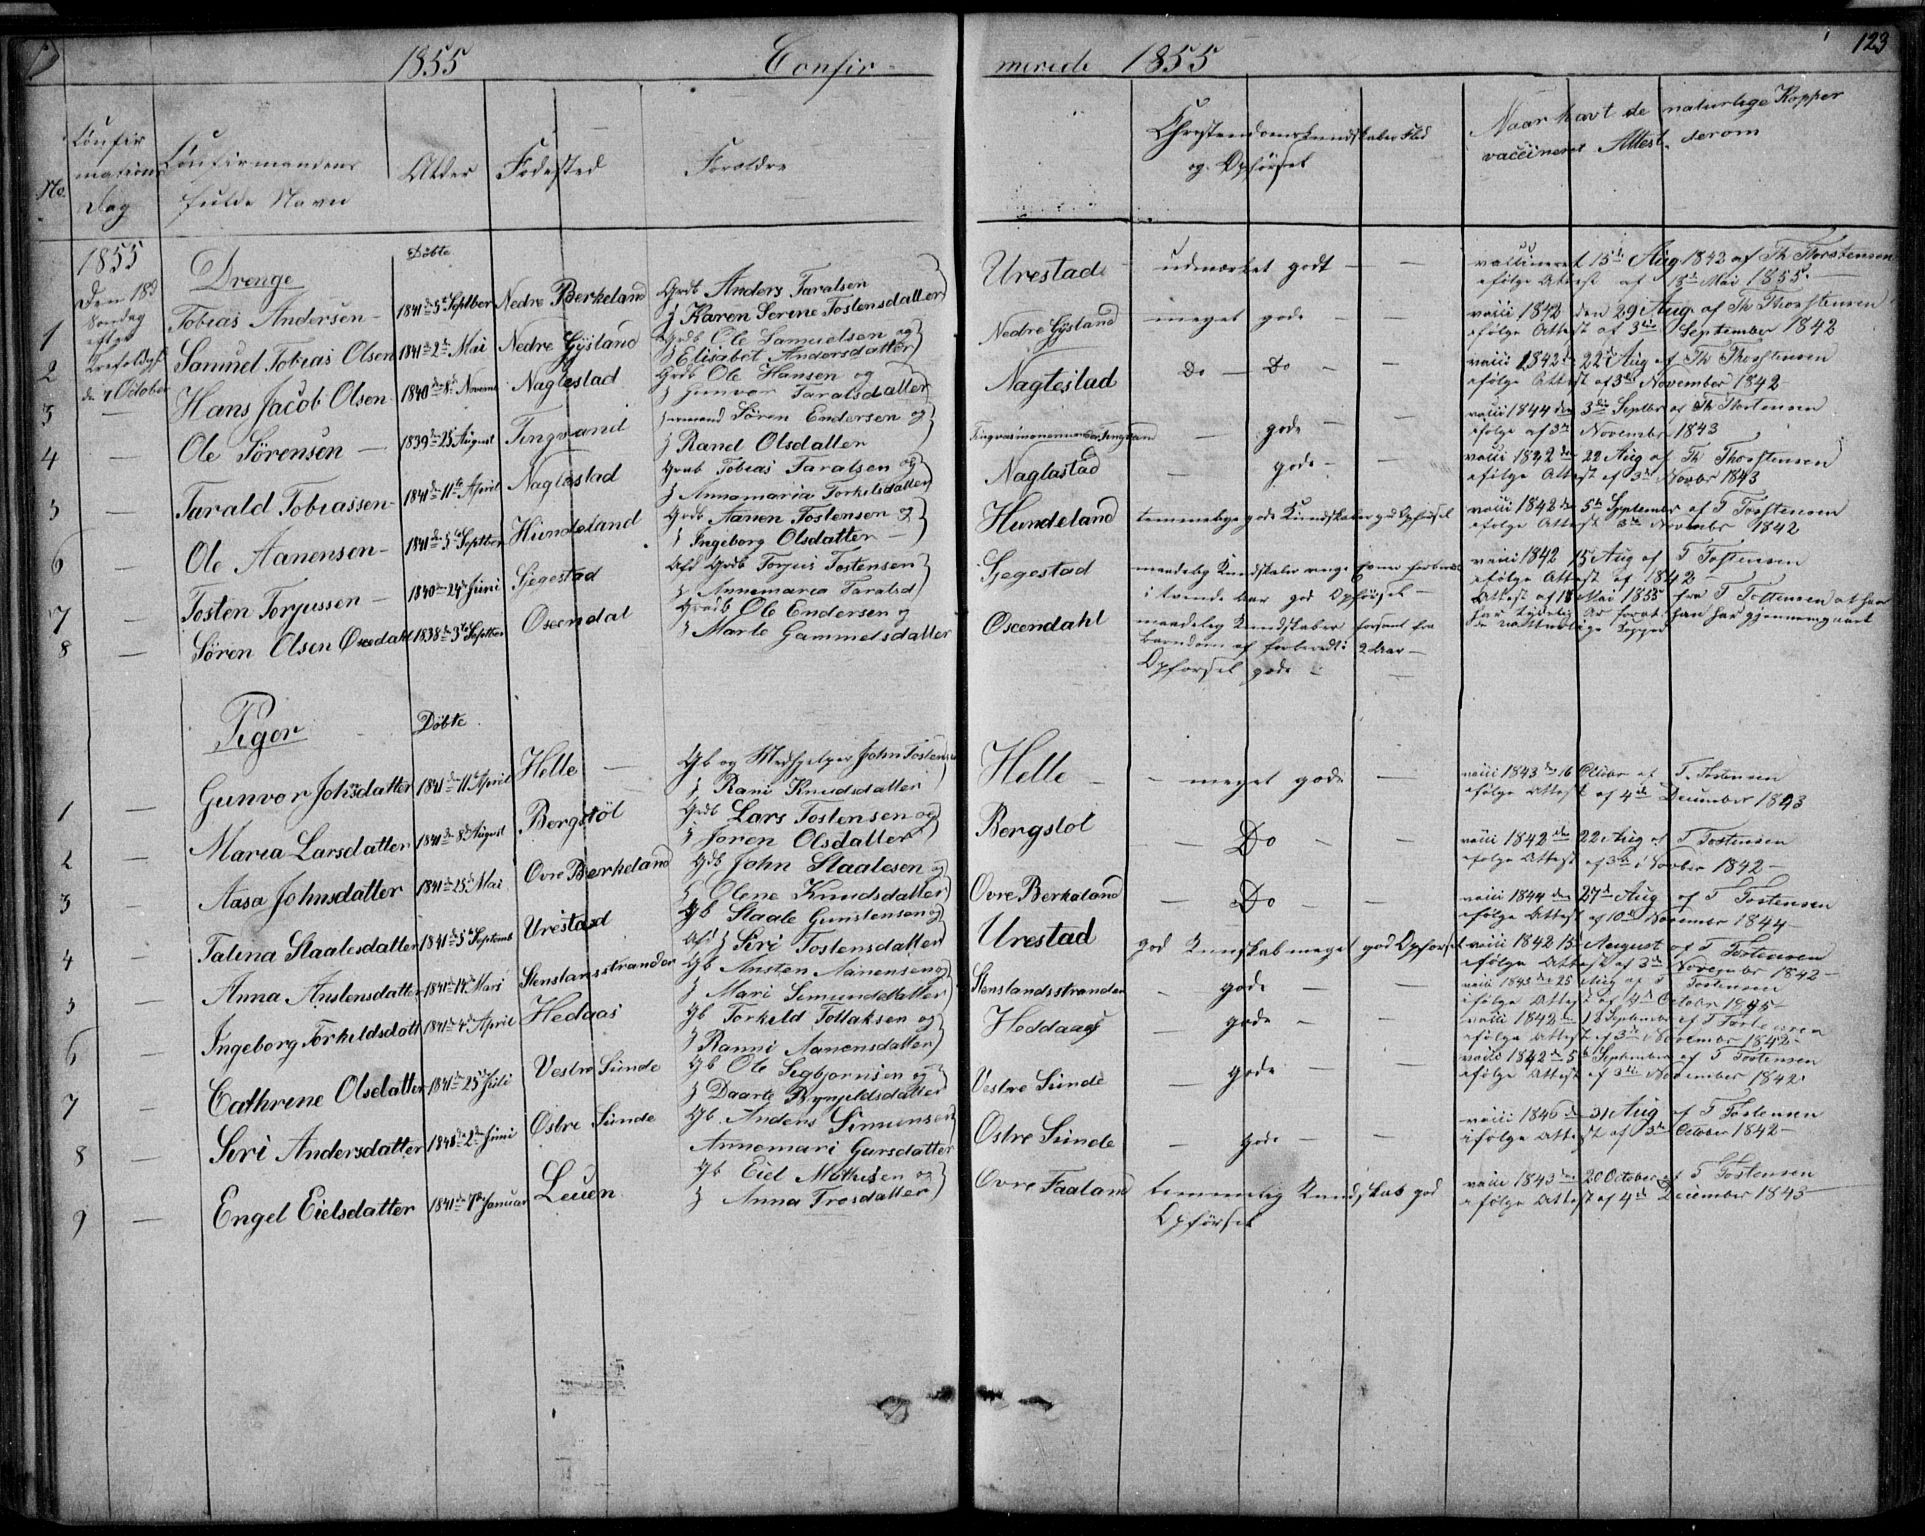 1855 Confir-
merede 1855
123
No.
Confir
mations
Dag
Confirmandens
fulde Navn
Alder
Fødested
Forældre
Christendoms Kundskaber Flid
og Opførsel
Naar havt de naturlige Kopper
vaccineret Attest derom
1855
Den 18d
Søndag
efter
Trefoldigh
de 7 October
Drenge
Døbte
1 Tobias Andersen 1841 den 5te Septber Nedre Berkeland Grdb Anders Taralsen
Karen Serine Tostensdatter
Urestad udmærket godt vaccineret 15de Aug 1842 af Th Thorstensen
efølge Attest af 18de Mai 1855
2 Samuel Tobias Olsen 1841 den 2de Mai Nedre Gysland Grdb Ole Samuelsen og
Elisabet Andersdatter
Nedre Gysland meget gode vacci 1842 den 29 Aug af Th Thorstensen
efølge Attest af 3die September 1842
3 Hans Jacob Olsen 1840 den 8de Novemb Naglestad Grdb Ole Hansen og
Gunvor Taralsdatter
Naglestad Do Do vacci 1842 den 22de Aug af Th Thorstensen
efølge Attest af 3die November 1842
4 Ole Sørensen 1839 den 25 August Tingvand Søren Endersen og
Ranel Olsdatter
gode vacci 1844 den 3die Septbr af Th Thorstensen
efølge af 3die November 1843
5 Tarald Tobiassen 1841 den 11te April Naglestad Grdb Tobias Taralsen og
Annamaria Torkelsdatter
Naglastad gode vacci 1842 den 22 Aug af Th Thorstensen
efølge Attest af 3die Novbr 1843
6 Ole Aanensen 1841 den 5te Septber Hundeland Grdb Aanen Tostensen og
Ingeborg Olsdatter
Hundeland temmelige gode Kundskaber gd Opførsel vacci 1842 den 5te September af T Torstensen
efølge Attest 3die Novembr 1842
7 Tosten Torjussen 1840 den 24de Juni Sjegestad Afd Grdb Torjus Tostensen
Annamaria Taralsd
Sjegestad maadelig Kundskaber
i tvende Aar god Opførsel
vacci 1842 15de Aug af T Tostensen
efølge Attest af 1842
8 Søren Olsen Oscedahl 1838 den 3die Septber Oscendal Grdb Ole Endersen og
Marte Gammelsdatter
Oscendahl maadelig Kundskaber forsømt fra
Barndom af forberedt i 2 Aar
Opførsel gode
Attest af 18 Mai 1855 fra T Tostensen at han
har tydelig Ar foroat han har gjennemgaaet
de naturlige Kopper
Piger
Døbte
1 Gunvor Johnsdatter 1841 den 11te April Helle Gb og Medhjelper John Tostensen
Rani Knudsdatter
Helle meget gode vacci 1843 den 16 Octbr af T. Tostensen
efølge Attest af 4de December 1843
2 Maria Larsdatter 1841 den 8de August Bergstøl Grdb Lars Tostensen og
Joren Olsdatter
Bergstol Do vacci 1842 den 22 Aug af T Tostensen
efølge Attest af 3die Novber 1842
3 Aasa Johnsdatter 1841 den 23de Mai Ovre Berkeland Gdb John Staalesen og
Olene Knudsdatter
Ovre Berkeland Do vacci 1844 den 27de Aug af T Tostensen
efølge Attest af 10de November 1844
4 Talena Staalesdatter 1841 den 5te Septemb Urestad Gb Staale Gunstensen og
Afd Siri Tostensdatter
Urestad god Kunskab meget god Opførsel vacci 1842 15de August af T Tostensen
efølge Attest af 3die November 1842
5 Anna Anstensdatter 1841 den 14de Mars Stenslansstranden Gb Ansten Aanensen og
Mari Simundsdatter
Stenslandsstranden gode vacci 1843 den 25 Aug af T Tostensen
ifølge Attest af 4de October 1845
6 Ingeborg Torkeldsdatt 1841 den 4de April Hedaas Gb Torkeld Tollaksen og
Ranni Aanensdatter
Heddaas gode vacci 1842 den 18 September af T Tostensen
efølge Attest af 3die November 1842
7 Cathrine Olsdatter 1841 den 25de Juli Vestre Sunde Gb Ole Segbjornsen og
Daarte Brynjeldsdatter
Vestre Sunde gode vacci 1842 den 5te September af T Tostensen
efølge Attest af 3die November 1842
8 Siri Andersdatter 1840 den 2den Juni Ostre Sunde Gb Anders Simunsen
Annemari Garsdatter
Ostre Sunde gode vacci 1846 den 31 Aug af T Tostensen
ifølge Attest af 3die October 1842
9 Engel Eielsdatter 1841 den 7de Januar Leuen Gb Eiel Mathisen og
Anna Trosdatter
Ovre Faaland temmelig Kundskab god
Opførsel
vacci 1843 den 20 October af T Tostensen
efølge Attest af 4de December 1843